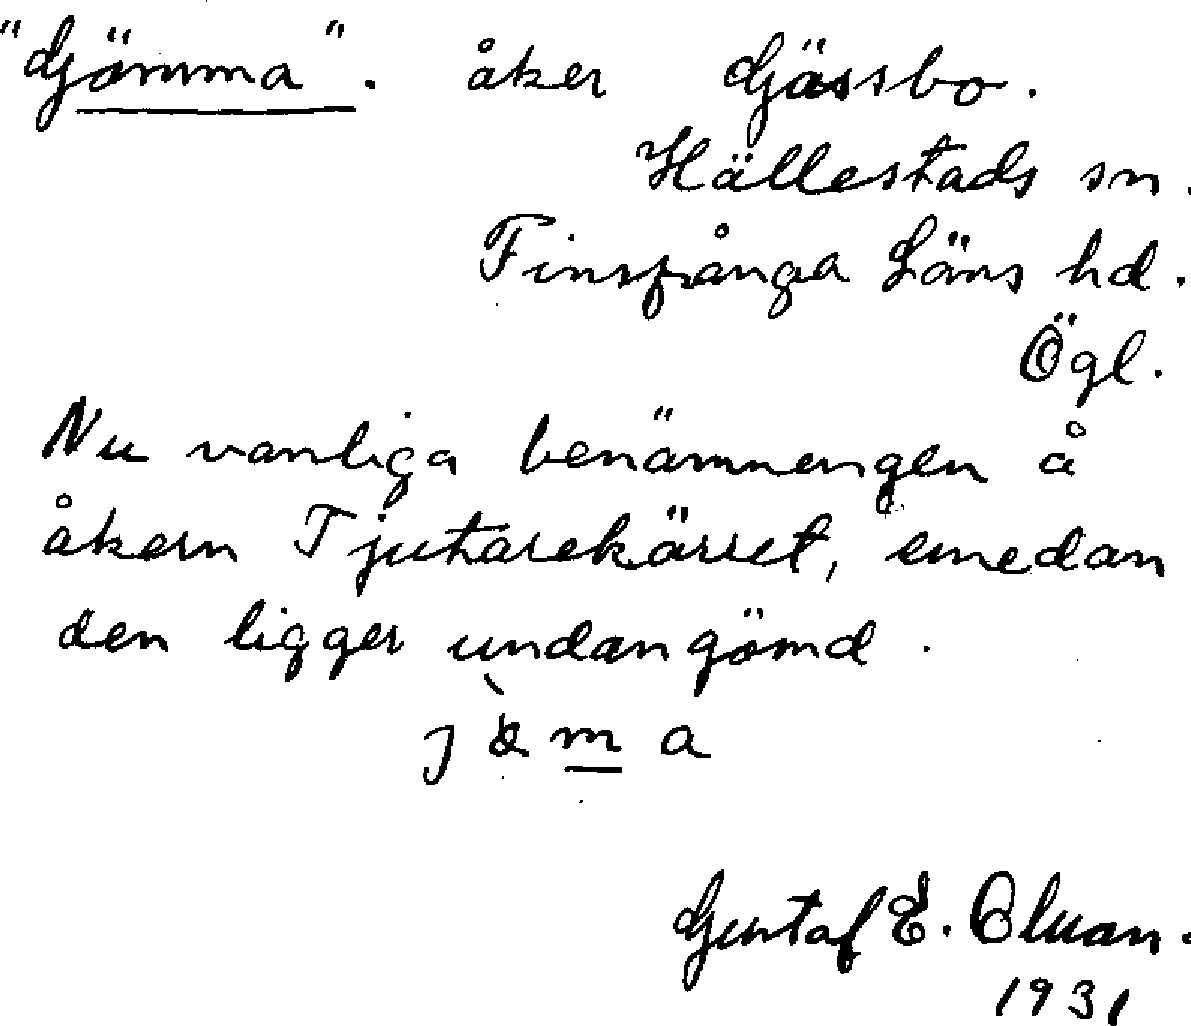 "Gjömma". åker Gjässbo.
Hällestads sn.
Finspånga Läns hd.
Ögl.
Nu vanliga benämnengen å
åkern Tjutarekärret, emedan
den ligger undangömd.
j m a
Gustaf E.
1931